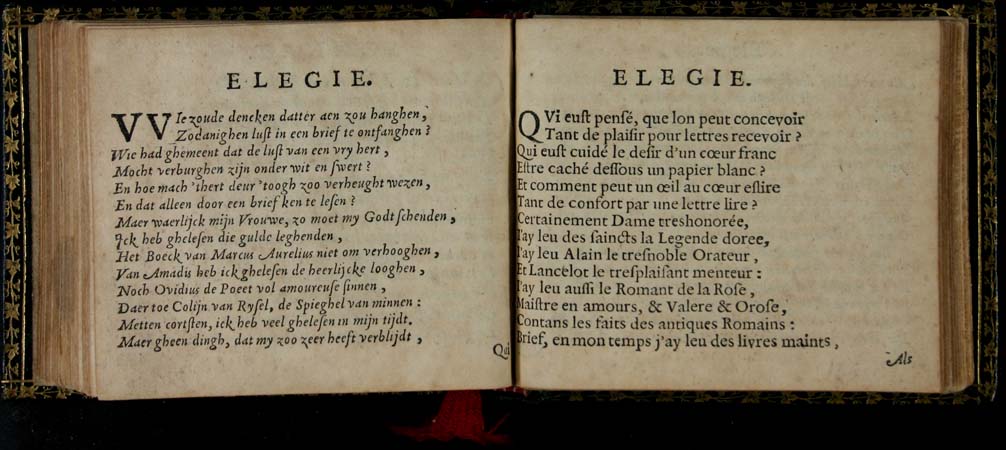 ELEGIE.
VVIe zoude dencken datter aen zou hanghen,
Zodanighen lust in een brief te ontfanghen?
Wie had ghemeent dat de lust van een vry hert,
Mocht verburghen zijn onder wit en swert?
En hoe mach 'thert deur 'toogh zoo verheught wezen,
En dat alleen door een briefken te lesen?
Maer waerlijck mijn Vrouwe, zo moet my Godt schenden,
Ick heb ghelesen die gulde leghenden,
Het Boeck van Marcus Aurelius niet om verhooghen,
Van Amadis heb ick ghelesen de heerlijcke looghen,
Noch Ovidius de Poeet vol amoureuse sinnen,
Daer toe Colijn van Rysel, de Spieghel van minnen:
Metten cortsten, ick heb veel ghelesen in mijn tijdt.
Maer gheen dingh, dat my zoo zeer heeft verblijdt,
Qui
ELEGIE.
QVi eust pensé, que lon peut concevoir
Tant de plaisir pour lettres recevoir?
Qui eust cuidé le desir d'un cœur franc
Estre caché dessous un papier blanc?
Et comment peut un œil au cœur eslire
Tant de confort par une lettre lire?
Certainement Dame treshonorée,
J'ay leu des saincts la Legende doree,
J'ay leu Alain le tresnoble Orateur,
Et Lancelot le tresplaisant menteur:
J'ay leu aussi le Romant de la Rose,
Maistre en amours, & Valere & Orose,
Contans les faits des antiques Romains:
Brief, en mon temps j'ay leu des livres maints,
Als